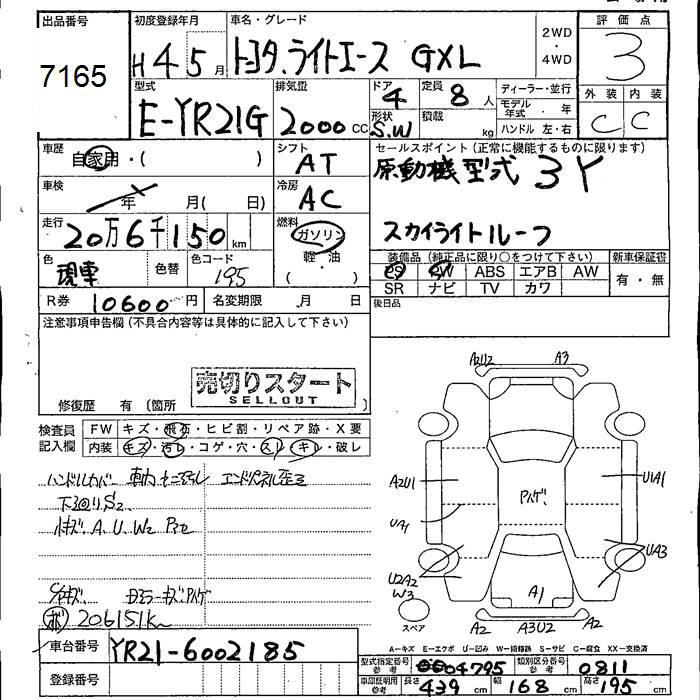 出品番号
7165
初度登録年月
H 4 5 月
車名・グレード
トヨタ、ライトエース GXL
2WD
・
4WD
評価点
3
型式
E-YR21G
排気量
2000 cc
ドア
4
形状
S.W
定員 8 人
積載 kg
ディーラー・並行
モデル年式 ・ 年
ハンドル 左・右
外装 内装
C C
車歴
自家用・( )
シフト
AT
セールスポイント(正常に機能するものに限ります)
原動機型式 3Y
スカイライトルーフ
車検
年 月( 日)
冷房
AC
走行
20万6千150 km
燃料
ガソリン
軽・油
( )
色
現車
色替
色コード
195
装備品(純正品に限り○をつけて下さい)
PS PW ABS エアB AW
SR ナビ TV カワ
新車保証書
有・無
R券 10600 円
名変期限 月 日
後日品
注意事項申告欄(不具合内容等は具体的に記入して下さい)
売切りスタート
SELLOUT
修復歴 有(箇所
検査員記入欄
FW キズ・飛石・ヒビ割・リペア跡・X要
内装 キズ・汚レ・コゲ・穴・スレ・キレ・破レ
ハンドルカバー
下廻りS2
A、U、W2
206151km
車台番号 YR21-6002185
登録番号
A2U2 A3
A2U1 U1A1
UA1
UA3
U2A2
W3
A1
スペア
A2 A3U2 A2
A-キズ E-エクボ U-凹み W-補修跡 S-サビ C-腐食 XX-交換済
型式指定番号 参考 04795
類別区分番号 参考 0811
車庫証明用 参考 長さ 439 cm 幅 168 cm 高さ 195 cm